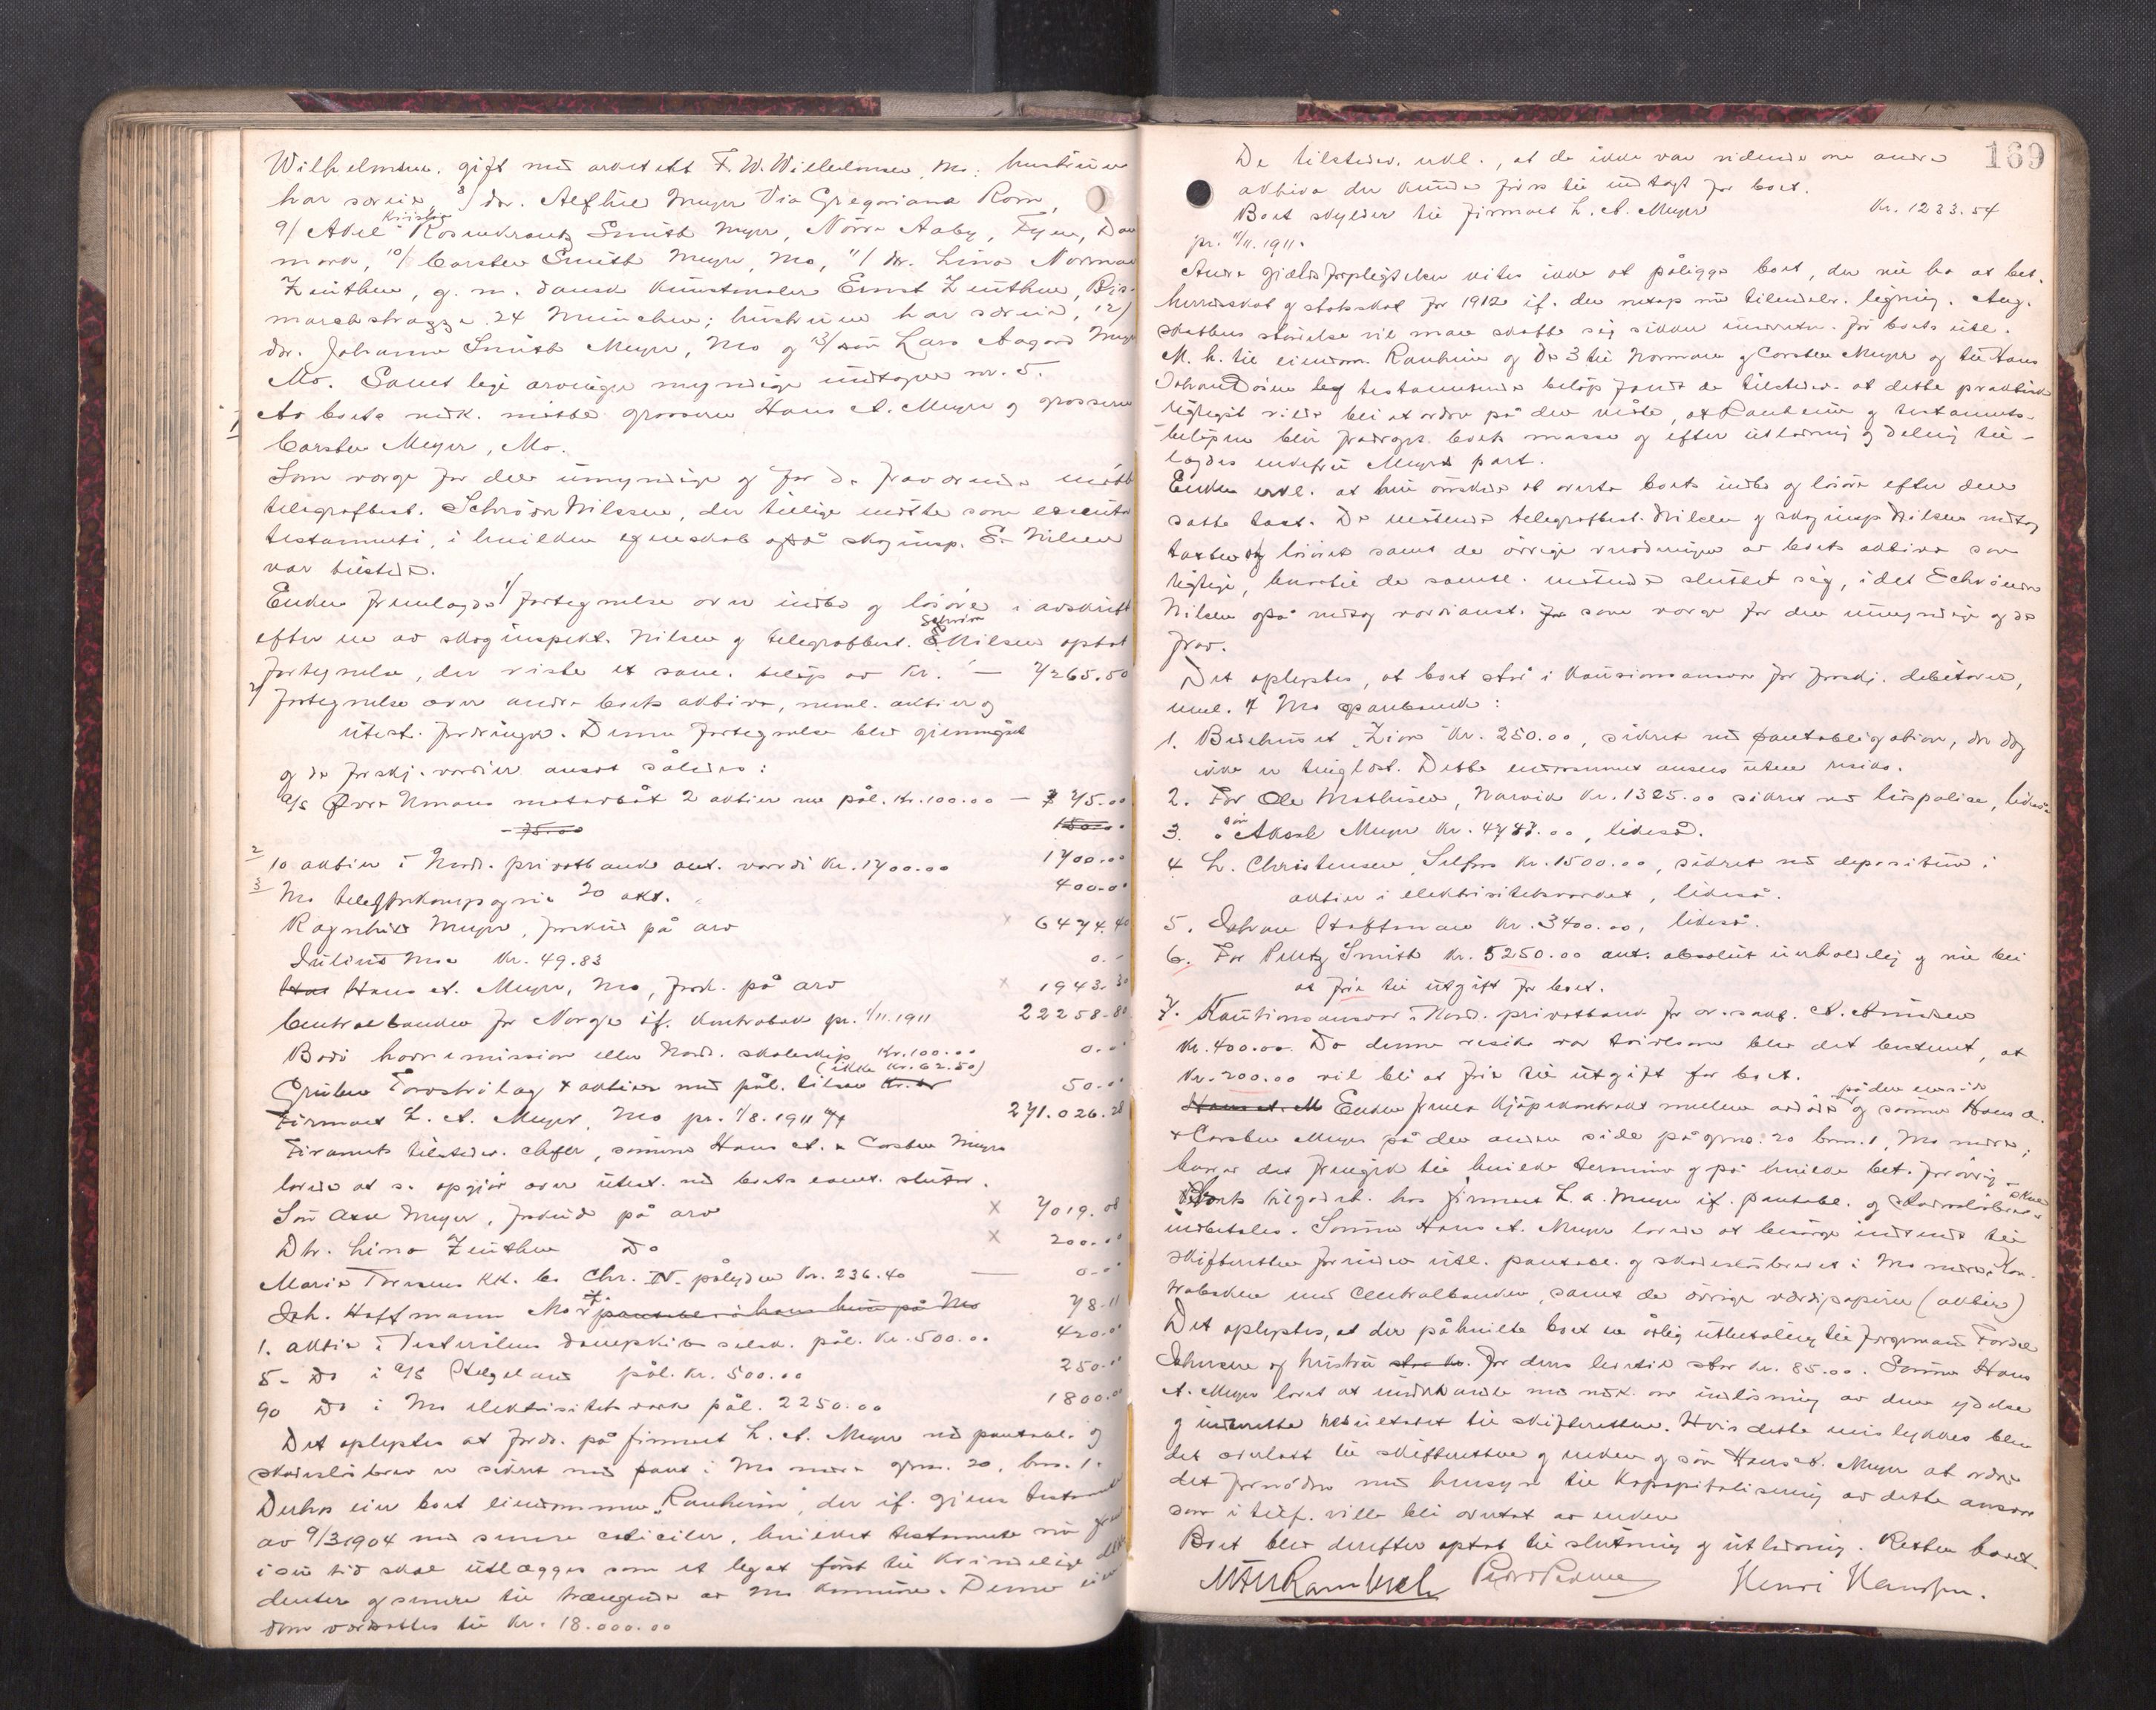 Wilhelmine, gift med arkitekt F. W. Wilhelmsen, Mo; hustruen
har særeie, 8/ dtr. Aethie Meyer Via Gregoriana Rom,
9/ Aksel Kristian Rosenkrantz Smith Meyer, Nörre Aaby, Fyen, Dan
mark, 10/ Carsten Smith Meyer, Mo, 11/ dtr. Lina Norman
Zeuthen, g. m. dansk kunstmaler Ernst Zeuthen, Bis-
marckstrasse 24 München; hustruen har særeie, 12)
dtr. Johanne Smith Meyer, Mo og 13/ sön Lars Aagard Meyer
Mo. Samtlige arvinger myndige undtagen nr. 5.
Av boets vedk. mötte grosserer Hans A. Meyer og grosserer
Carsten Meyer, Mo.
Som verge for den umyndige og for de fraværende mötte
telegrafbest. Schröder Nilssen, der tillige mötte som executor
testamenti, i hvilken egenskab også skoginsp. E. Nilsen
var tilstede.
Enken fremlagde 1/ fortegnelse over indbo og lösöre i avskrift
efter en av skoginspekt. Nilsen og telegrafbest. Schröder Nilsen optat
fortegnelse, der viste et saml. belöp av Kr. — 7265.50
2/ fortegnelse over andre boets aktiva, neml. aktier og
utest. fordringer. Denne fortegnelse blev gjennemgåt
og de forskj. værdier ansat således:
1/ A/S Övre Ranens motorbåt 2 aktier en pål. Kr. 100.00 — 75.00
- 75.00 150.00
2 10 aktier i Nord. privatbank ant. værdi Kr. 1700.00 1700.00
3 Mo telefonkompagnie 20 akt. 400.00
Ragnhild Meyer, forskud på arv x 6474.40
Julius Moe Kr. 49.83 0.-
Hans A. Meyer, Mo, forsk. på arv x 1943.30
Centralbanken for Norge if. kontrabok pr. 1/11.1911 22258.80
Bodö hovedmission eller Nord. skoleskip Kr. 100.00 0.00
(ikke Kr. 62.50)
Gruben Torvströlag 4 aktier med pål. tilsm Kr. 50.00
Firmaet L. A. Meyer, Mo pr. 1/8.1911 271.026.28
Firmaets tilstedev. chefer, sönnene Hans A. & Carsten Meyer
lovede at se opgjör over utest. ved boets eventl. slutn.
Sön Axel Meyer, forskud på arv x 7019.08
Dtr. Lina Zeuthen Do x 200.00
Marie Torgersens KK. bo Chr. IV. pålyden Kr. 236.40 — 0.00
Joh. Hoffmann Mo pantobl. i hans hus på Mo 78.11
1. aktie i Vesterålens dampskibs selsk. pål. Kr. 500.00 420.00
5 - Do i A/S Helgeland pål. Kr. 500.00 250.00
90 Do i Mo elektrisitetsverk pål. 2250.00 1800.00
Det oplystes at fordr. på firmaet L. A. Meyer ved pantobl. og
skadeslösbrev er sikret med pant i Mo nedre gnr. 20, bnr. 1.
Derhos eier boet eiendommen "Ranheim", der if. gjens. testament
av 9/3 1904 med senere codiciler, hvilket testamente nu
i sin tid skal utlægges som et legat först til kvindelige
dentere og senere til trængende av Mo kommune. Denne eien
dom værdsattes til Kr. 18.000.00
169
De tilstedev. erkl., at de ikke var vidende om andre
aktiva der kunde föres til indtægt for boet.
Boet skylder til firmaet L. A. Meyer Kr. 1233.54
pr. 1/11.1911.
Andre gjældsforpligtelser vites ikke at påligge boet, der nu har at bet.
herredskat og statsskat for 1912 if. den netop nu tilendebr. ligning. Ang.
skattens störrelse vil man skaffe sig sikker underretn. för boets utl.
M. h. til eiendom. Ranheim og de 3 til Norman og Carsten Meyer og til Hans
Johan testamenterede belöp fandt de tilstedev. at dette praktisk
rigtigst vilde bli at ordne på den måte, at Ranheim og testaments-
belöpene blir fradraget boets masse og efter utlodning og deling til-
lægges enkefru Meyers part.
Enken erkl. at hun önskede at overta boets indbo og lösöre efter den
satte takst. De mötende telegrafbest. Nilsen og skoginsp. Nilsen vedtog
taksten og lösöret samt de övrige vurderinger av boets aktiva som
rigtige, hvortil de samtl. mötende sluttet sig, idet Schröder
Nilsen også vedtog værdianst. som verge for den umyndige og de
frav.
Det oplystes, at boet står i kausionsansvar for forskj. debitorer,
neml. i Mo sparebank:
1. Bedehuset "Zion" Kr. 250.00, sikret ved pantobligation, der dog
ikke er tinglæst. Dette endossement ansees uten risiko.
2. For Ole Mathisen, Narvik Kr. 1325.00 sikret ved livspolice, likeså
3. " sön Aksel Meyer Kr. 4787.00, likeså.
4 L. Christensen, Selfors Kr. 1500.00, sikret ved depositum i
aktier i elektrisitetsverket, likeså.
5. Johan Hoffmann Kr. 3400.00, likeså.
6. For Peutz Smith Kr. 5250.00 ant. absolut uerholdelig og vil bli
at före til utgift for boet.
7. Kautionsansvar i Nord. privatbank for ov.sakf. A. Amundsen
Kr. 400.00. Da denne risiko var tvilsom blev det bestemt, at
Kr. 200.00 vil bli at före til utgift for boet.
Hans A. M Enken freml. kjöpekontrakt mellem avdöde på den ene side og sönnene Hans A.
& Carsten Meyer på den anden side på gnr. 20 bnr. 1, Mo nedre,
hvorav det fremgik til hvilke terminer og på hvilke bet. forövrig
boets tilgodeh. hos firmaet L. A. Meyer if. pantobl. og skadeslösbrev skulde
indbetales. Sönnen Hans A. Meyer lovede at besörge indsendt til
skifteretten forinden utl. pantobl. og skadeslösbrevet i Mo nedre, kon-
traboken med Centralbanken, samt de övrige værdipapirer (aktier)
Det oplystes, at der påhvilte boet en årlig utbetaling til forgmand Tordel
Johnsen og hustru for deres levetid stor Kr. 85.00. Sönnen Hans
A. Meyer lovet at underhandle med vedk. om indlösning av denne ydelse
og indberette resultatet til skifteretten. Hvis dette mislykkes blir
det overlatt til skifteretten og enken og sön Hans A. Meyer at ordne
det fornödne med hensyn til kapitalisering av dette ansvar
som i tilf. ville bli overtat av enken
Boet blev derefter optat til slutning og utlodning. Retten hævet
Peder Pedersen Henri Hansen.